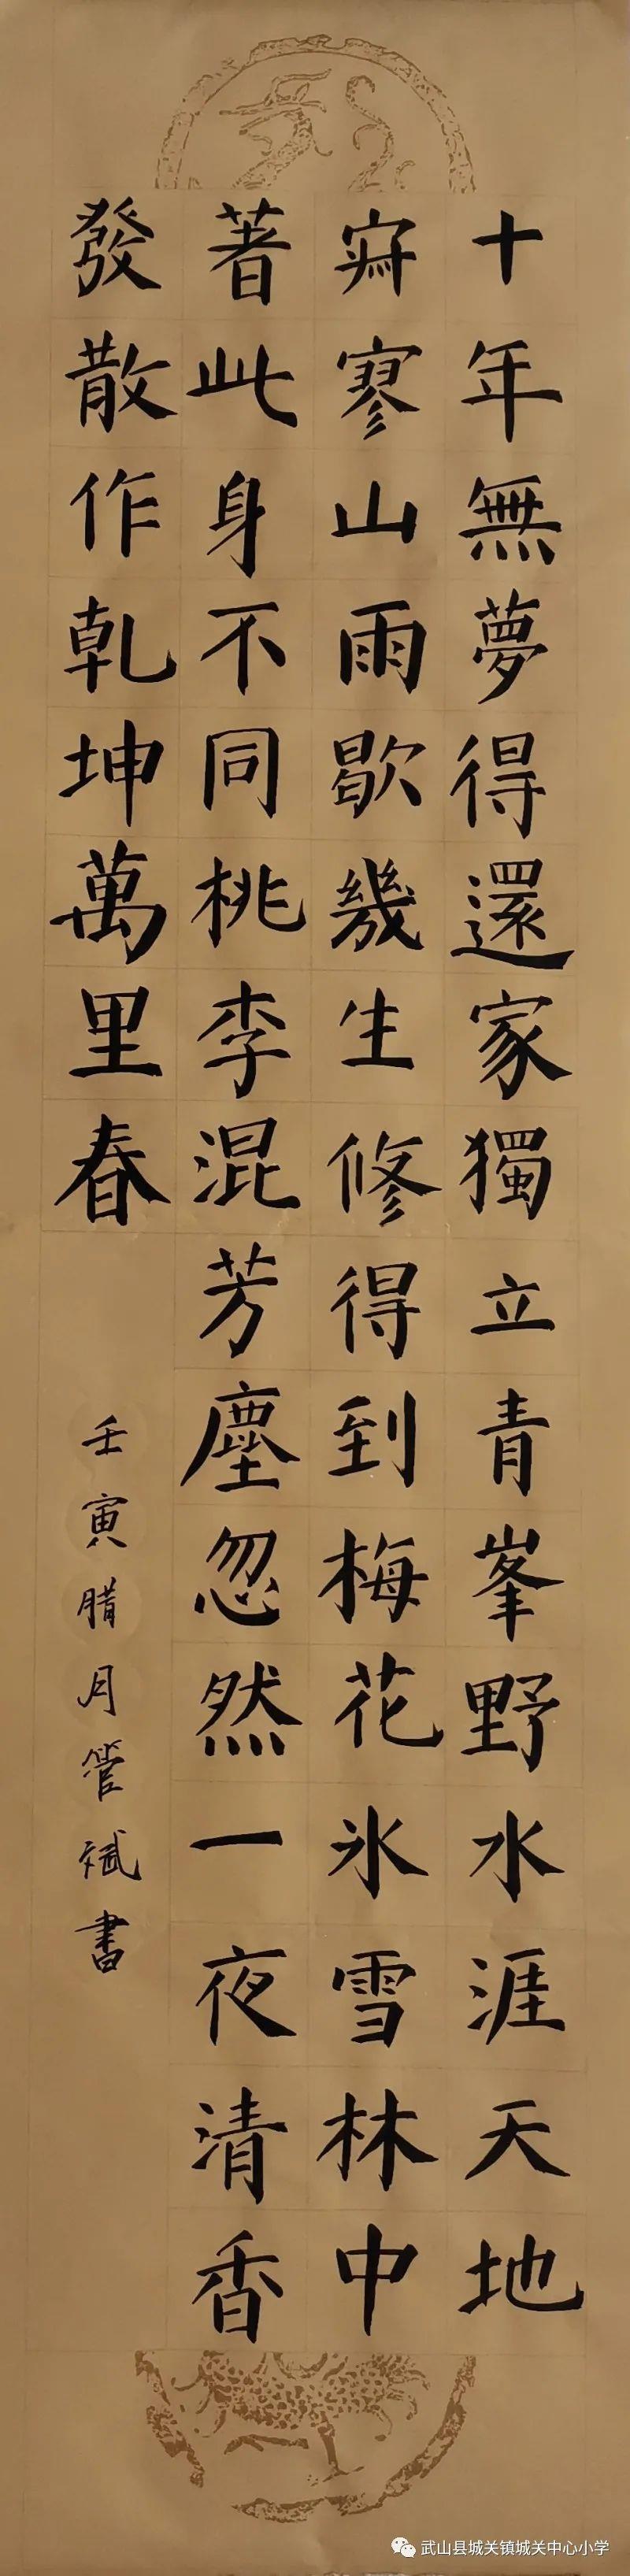 十年無夢得還家獨立青峯野水涯天地
寂寥山雨歇幾生修得到梅花氷雪林中
著此身不同桃李混芳塵忽然一夜清香
發散作乾坤萬里春
壬寅腊月管斌書
武山县城关镇城关中心小学